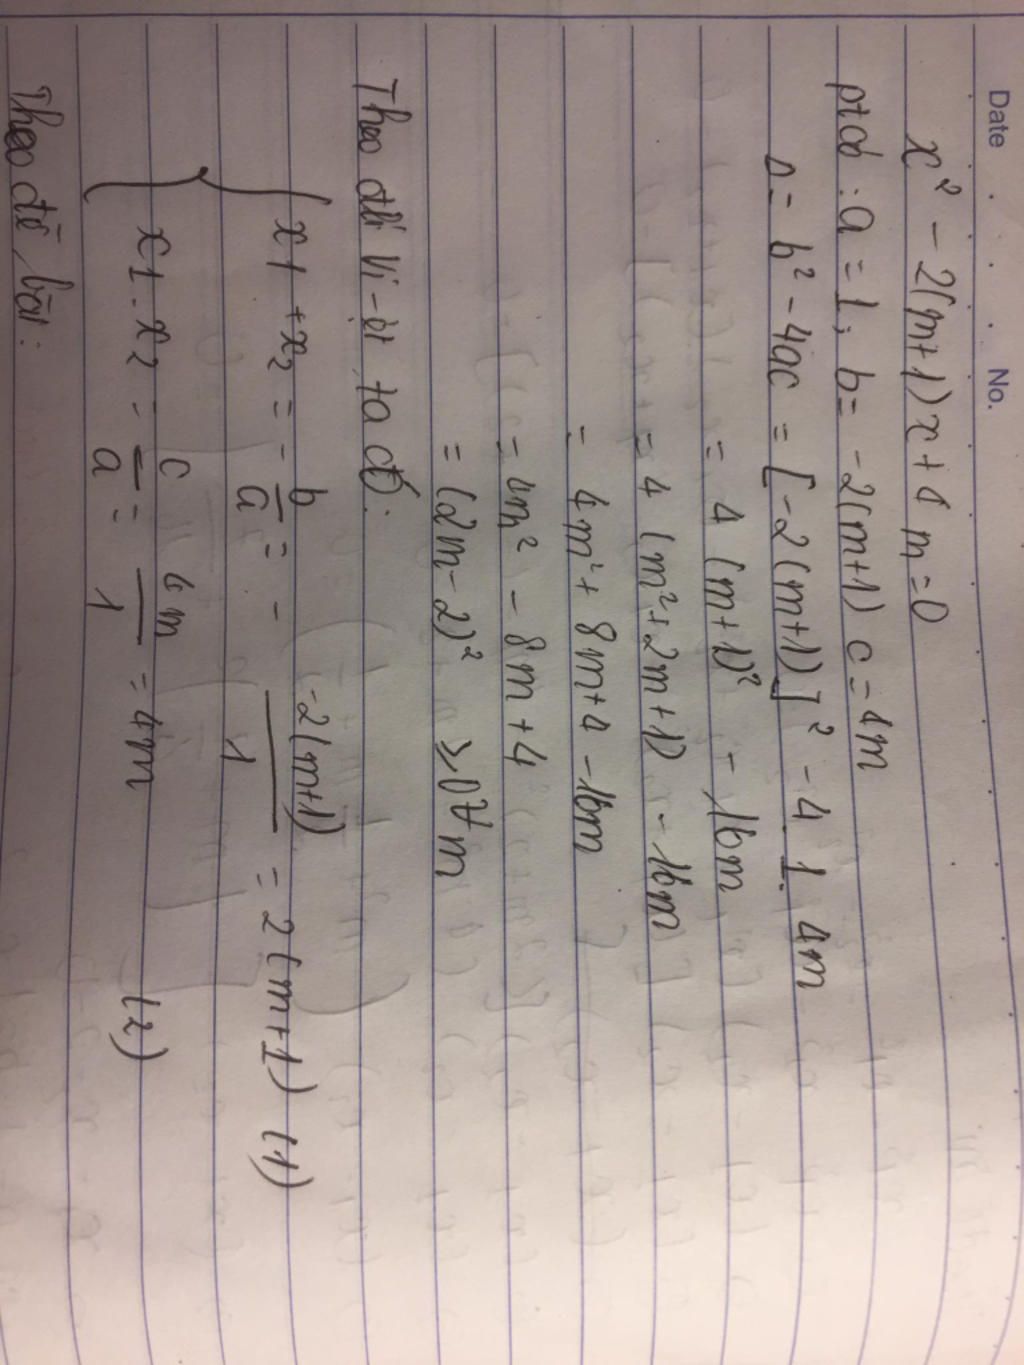 Date No.
x² - 2(m+1)x + 4m = 0
ptcó : a = 1; b = -2(m+1) c = 4m
Δ = b² - 4ac = [-2(m+1)]² - 4.1.4m
= 4(m+1)² - 16m
= 4(m²+2m+1) - 16m
= 4m² + 8m + 4 - 16m
= 4m² - 8m + 4
= (2m-2)² ≥ 0 ∀m
Theo đlí Vi-ét ta có:
{ x1 + x2 = - b/a = - -2(m+1)/1 = 2(m+1) (1)
x1 . x2 = c/a = 4m/1 = 4m (2)
Theo đề bài: